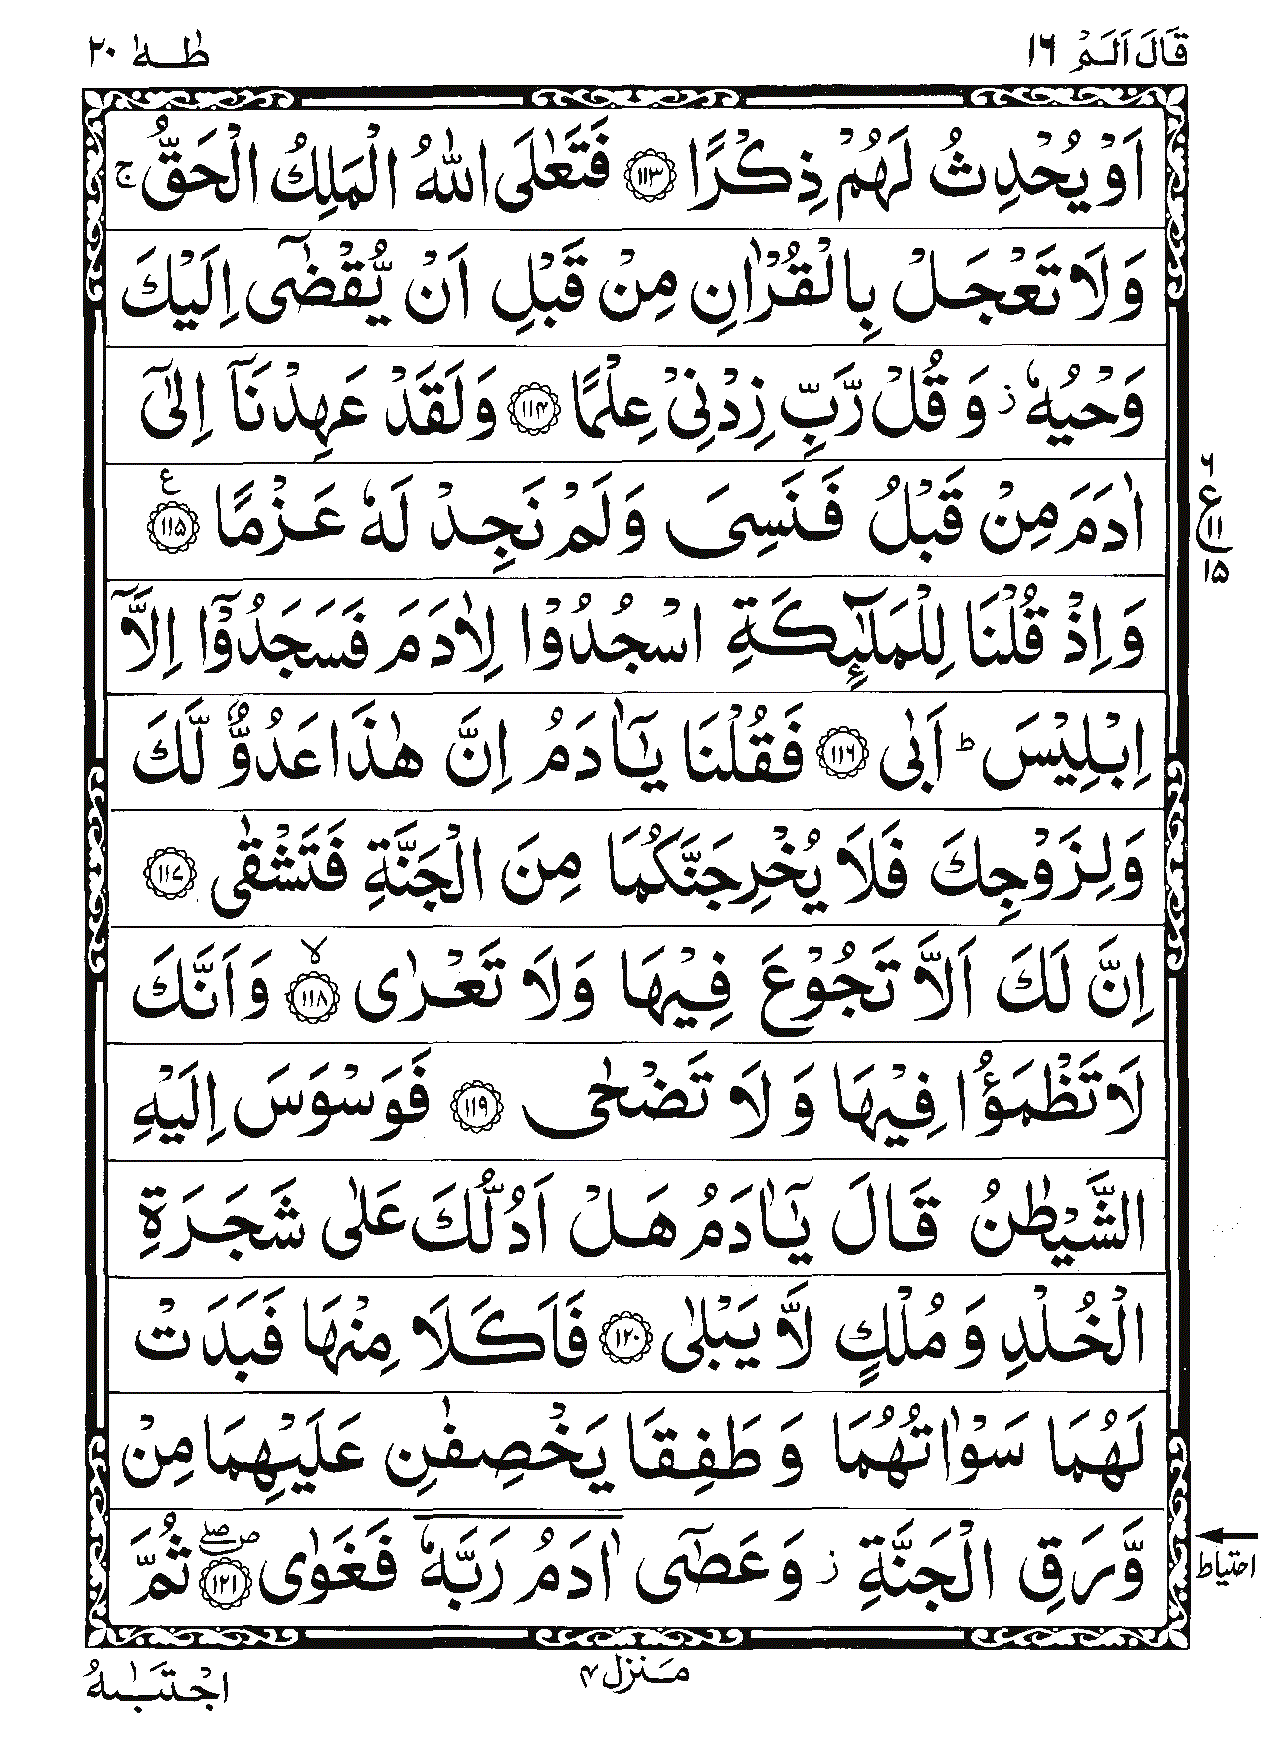 قَالَ اَلَمْ ١٦
طٰهٰ ٢٠
اَوْ يُحْدِثُ لَهُمْ ذِكْرًا ﴿١١٣﴾ فَتَعٰلَى اللّٰهُ الْمَلِكُ الْحَقُّ ۚ
وَلَا تَعْجَلْ بِالْقُرْاٰنِ مِنْ قَبْلِ اَنْ يُّقْضٰٓى اِلَيْكَ
وَحْيُهٗ ؗ وَ قُلْ رَّبِّ زِدْنِیْ عِلْمًا ﴿١١٤﴾ وَلَقَدْ عَهِدْنَاۤ اِلٰۤى
اٰدَمَ مِنْ قَبْلُ فَنَسِیَ وَلَمْ نَجِدْ لَهٗ عَزْمًا ﴿١١٥﴾ ع
وَاِذْ قُلْنَا لِلْمَلٰٓئِكَةِ اسْجُدُوْا لِاٰدَمَ فَسَجَدُوْۤا اِلَّاۤ
اِبْلِيْسَ ؕ اَبٰى ﴿١١٦﴾ فَقُلْنَا يٰۤاٰدَمُ اِنَّ هٰذَا عَدُوٌّ لَّكَ
وَلِزَوْجِكَ فَلَا يُخْرِجَنَّكُمَا مِنَ الْجَنَّةِ فَتَشْقٰى ﴿١١٧﴾
اِنَّ لَكَ اَلَّا تَجُوْعَ فِيْهَا وَلَا تَعْرٰى ﴿١١٨﴾ ۙ وَاَنَّكَ
لَا تَظْمَؤُا فِيْهَا وَ لَا تَضْحٰى ﴿١١٩﴾ فَوَسْوَسَ اِلَيْهِ
الشَّيْطٰنُ قَالَ يٰۤاٰدَمُ هَلْ اَدُلُّكَ عَلٰى شَجَرَةِ
الْخُلْدِ وَ مُلْكٍ لَّا يَبْلٰى ﴿١٢٠﴾ فَاَكَلَا مِنْهَا فَبَدَتْ
لَهُمَا سَوْاٰتُهُمَا وَ طَفِقَا يَخْصِفٰنِ عَلَيْهِمَا مِنْ
وَّرَقِ الْجَنَّةِ ؗ وَعَصٰۤى اٰدَمُ رَبَّهٗ فَغَوٰى ﴿١٢١﴾ ص صلے ثُمَّ
٦
ع
١١
١٥
احتیاط
منزل ۴
اجْتَبٰىهُ